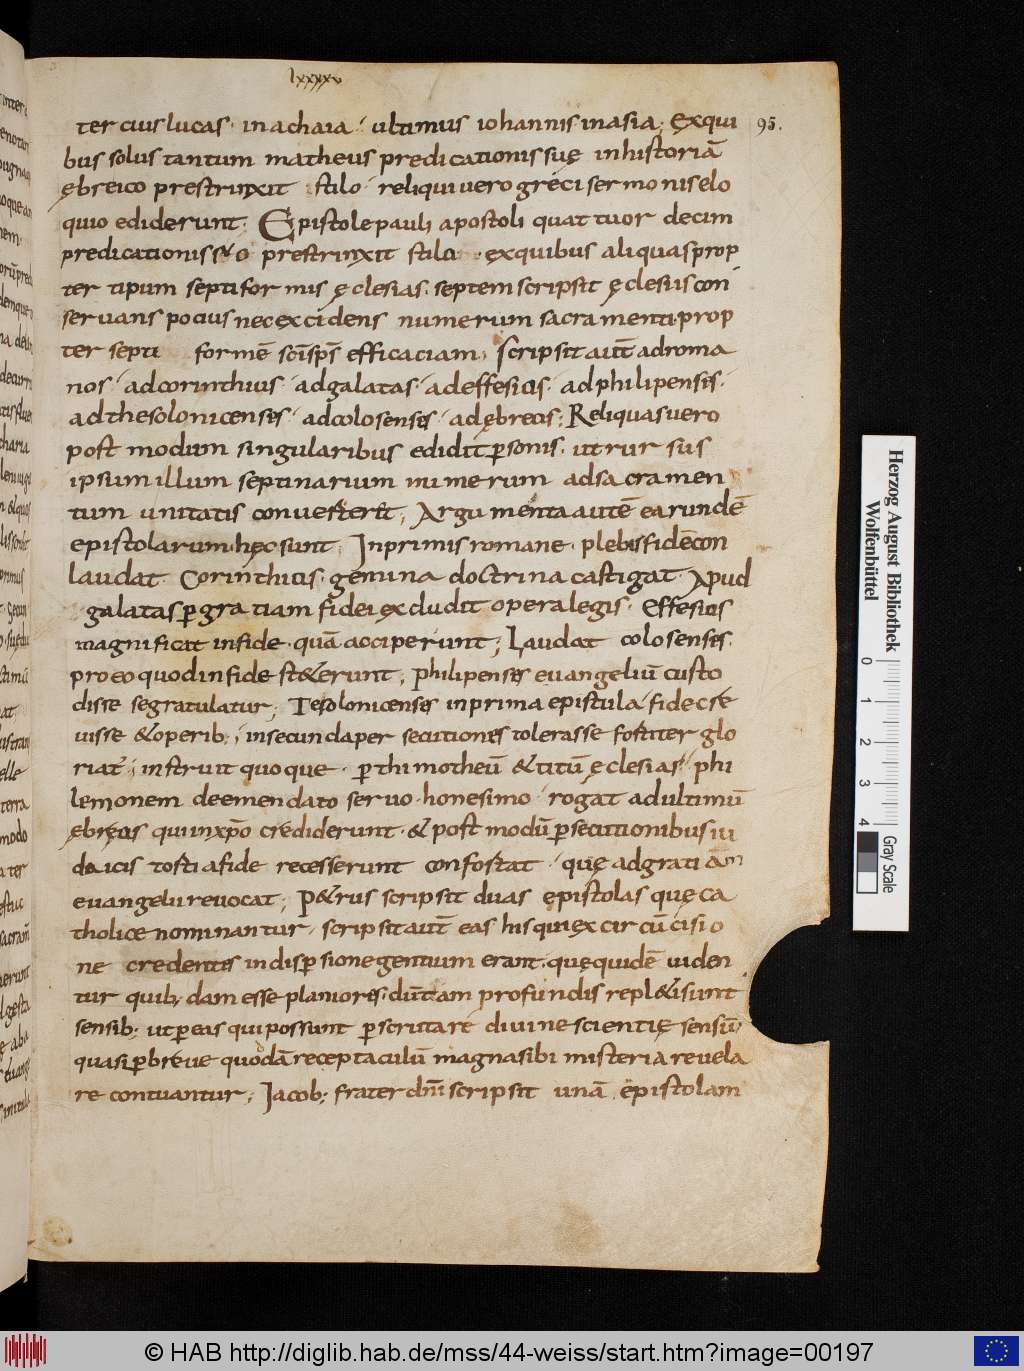 lxxxxv
95.
ter cuius lucas · in achaia · ultimus iohannis in asia; exqui
bus solus tantum matheus predicationis suę in historiā
ębreico prestrinxit stilo · reliqui vero greci sermonis elo
quio ediderunt · Epistole pauli apostoli quattuor decim
predicationis suo prestrinxit stilo · ex quibus aliquas prop
ter tipum septiformis ęclesias · septem scripsit ęclesiis con
servans pocius nec excidens numerum sacramenti · prop
ter septi formē scīspṡ efficaciam, scripsit aut̄ ad roma
nos · ad corinthius · ad galatas · ad effesios · ad philipenses ·
ad thesolonicenses · ad colosenses · ad ębreos; Reliquas vero
post modum singularibus edidit psonis · ut rur sus
ipsum illum septinarium numerum ad sacramen
tum unitatis converterēt; Argumenta autē earundē
epistolarum hęc sunt; In primis romane · plebis fidē con
laudat · Corinthios · genuina doctrina castigat · Apud
galatas p gratiam fidei excludit opera legis · Effesios
magnificat in fide · quā acciperunt; Laudat colosenses ·
pro eo quod in fide st&erunt; Philipenses evangeliū custo
disse se gratulatur; Tesolonicenses in prima epistula fide cre
visse & operib;; in secunda per secutiones tolerasse fortiter glo
riat̄; instruit quoque · p thimotheū & titū ęclesias · phi
lemonem de emendato servo · honesimo · rogat ad ultimū
ębręos qui inxpō crediderunt · & post modū psecutionibus iu
daicis tosti a fide recesserunt confortat · quę ad gratiam
evangelii revocat; P&rus scripsit duas epistolas quę ca
tholice nominantur, scripsit aut̄ eas his qui ex circūcisio
ne credentes in dispsione gentium erant · quę quidē viden
tur quib; dam esse planiores · dūtam profundis repl&i sunt
sensib; ut p eas qui possunt pscrutare divine scientię sensū
quasi p breve quodā receptaculū magna sibi misteria revela
re contuantur; Jacob; frater dn̄i scripsit unā epistolam
Herzog August Bibliothek
Wolfenbüttel
0 1 2 3 4
Gray Scale
© HAB http://diglib.hab.de/mss/44-weiss/start.htm?image=00197